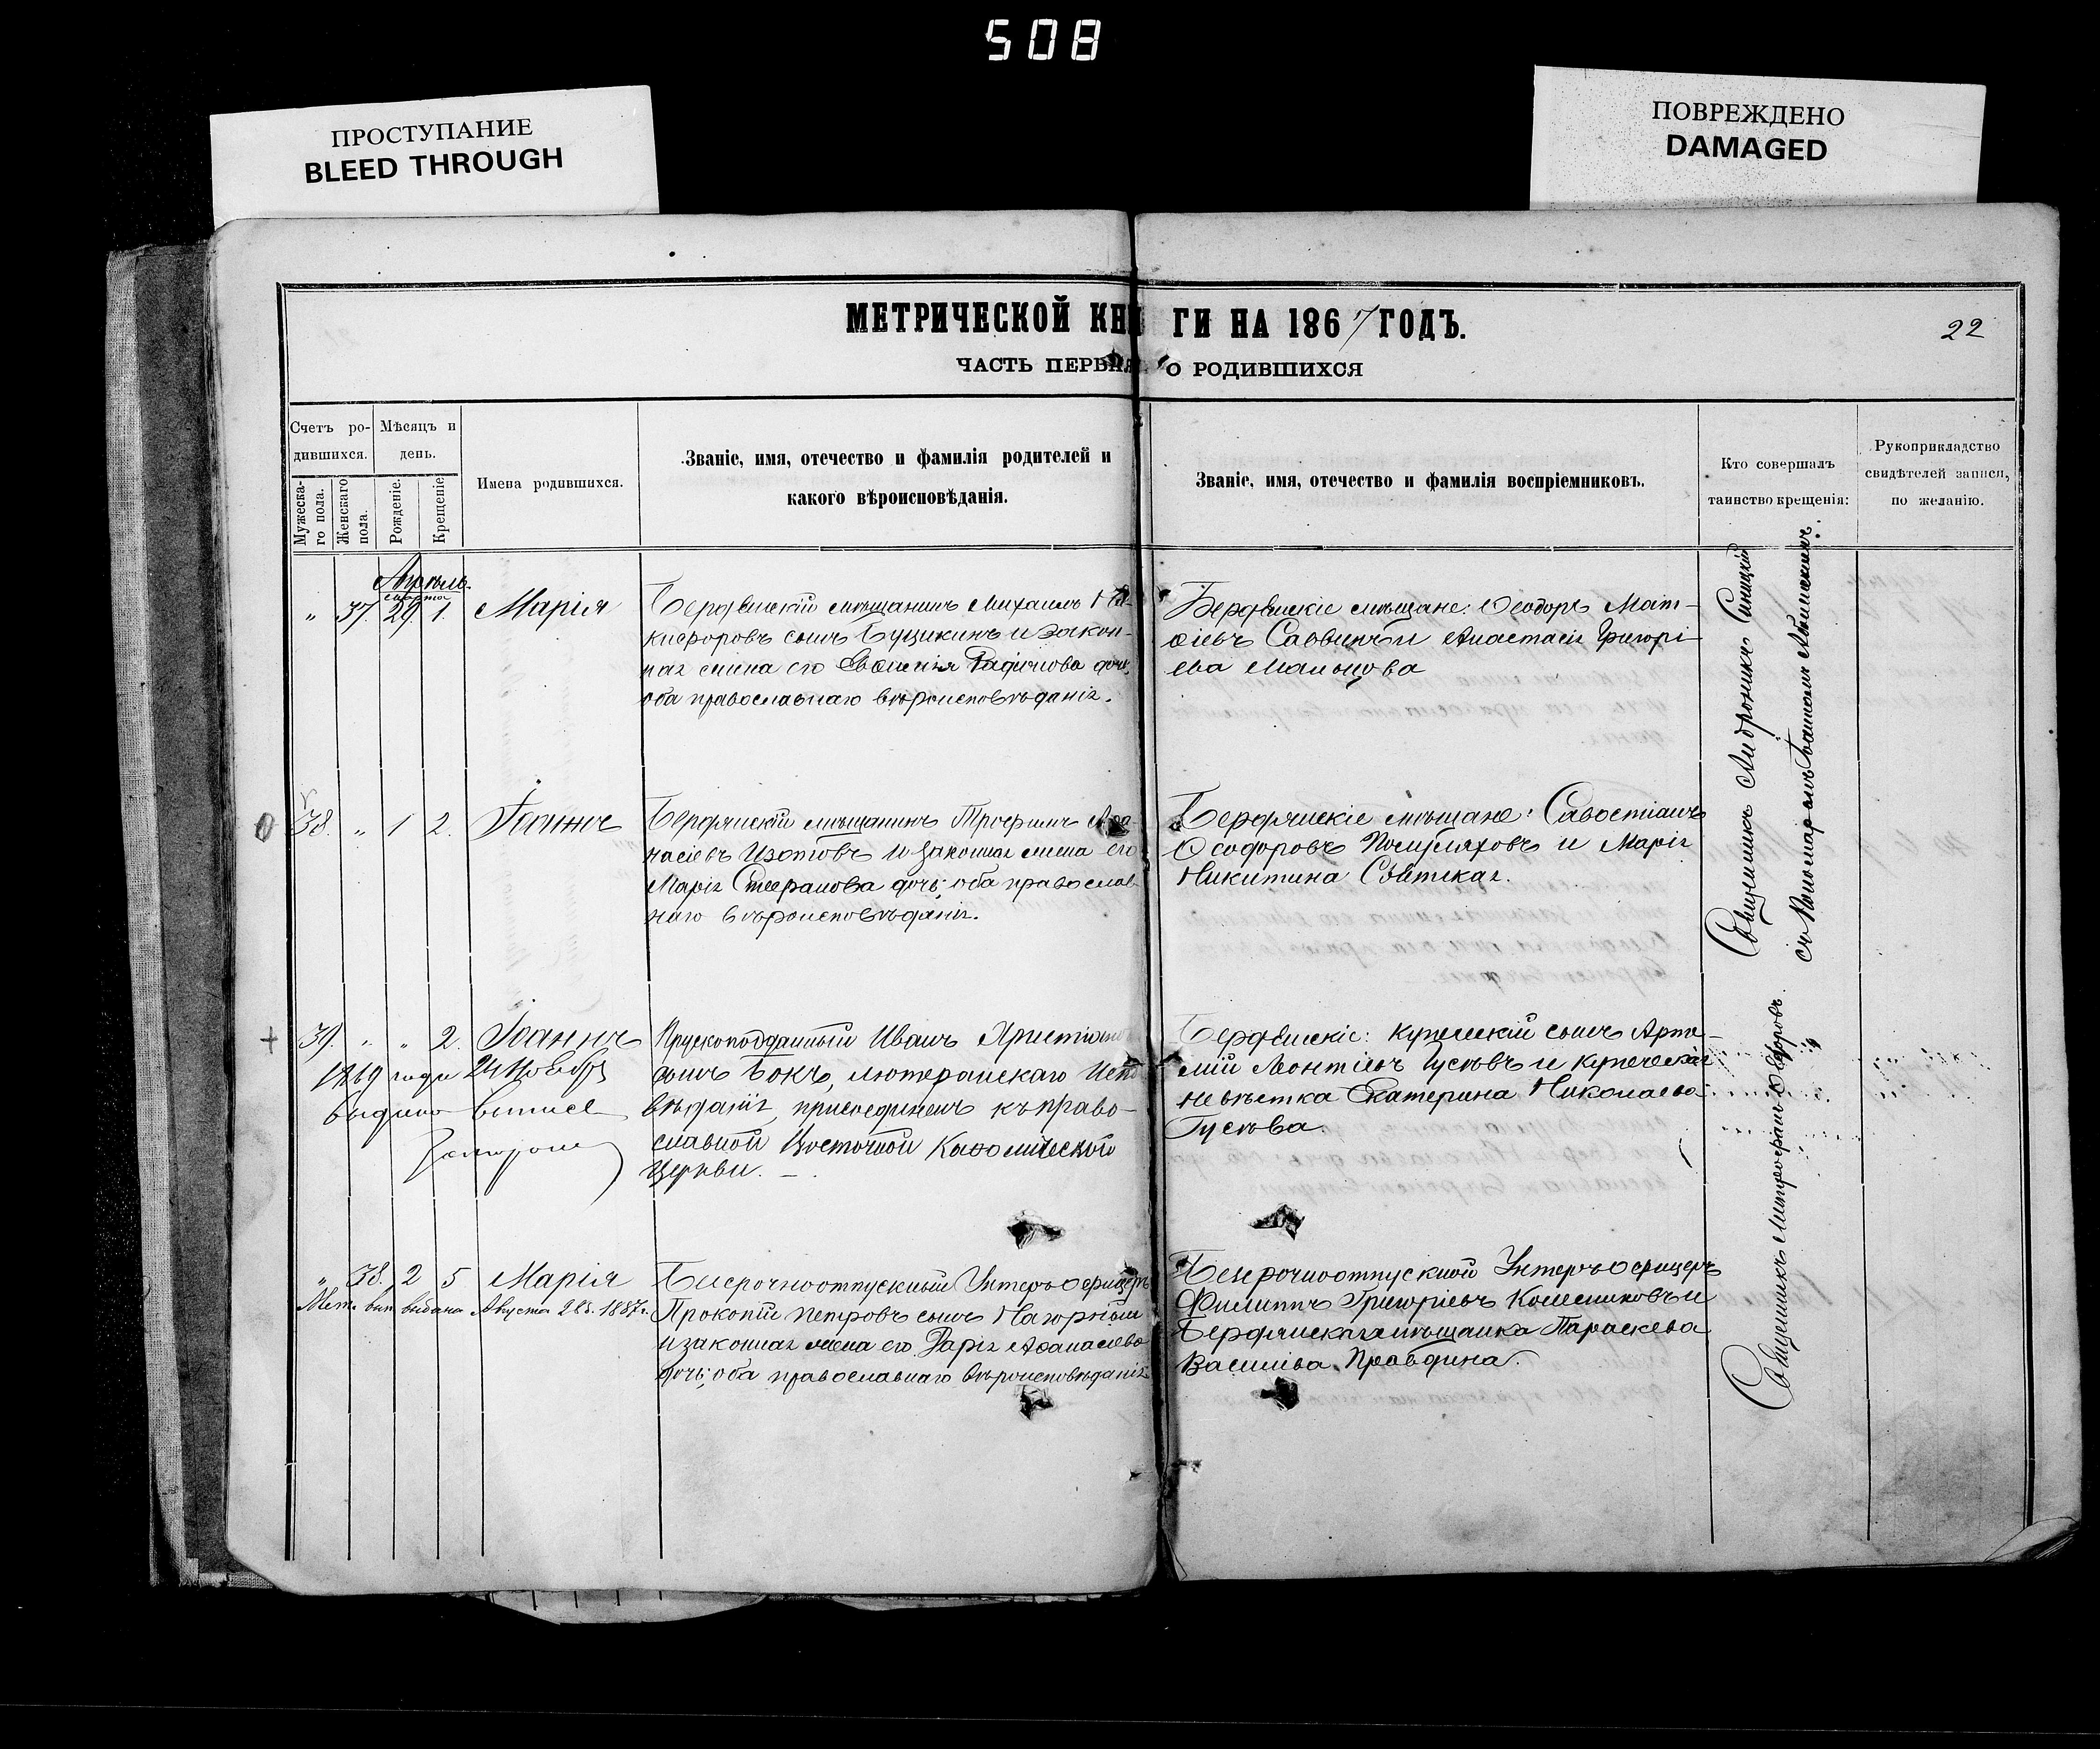 508
ПРОСТУПАНИЕ
BLEED THROUGH
ПОВРЕЖДЕНО
DAMAGED
МЕТРИЧЕСКОЙ КНИГИ НА 1867 ГОДЪ.
22
ЧАСТЬ ПЕРВАЯ О РОДИВШИХСЯ
Счетъ ро-
дившихся.
Мѣсяцъ и
день.
Мужеска-
го пола.
Женскаго
пола.
Рожденіе.
Крещеніе.
Имена родившихся.
Званіе, имя, отечество и фамилія родителей и
какого вѣроисповѣданія.
Званіе, имя, отечество и фамилія воспріемниковъ.
Кто совершалъ
таинство крещенія:
Рукоприкладство
свидѣтелей записи,
по желанію.
Апрѣль.
марта
„ 37. 29 1. Марія
Бердянскій мѣщанинъ Михаилъ Ни-
кифоровъ сынъ и закон-
ная жена его дочь,
оба православнаго вѣроисповѣданія.
Бердянскіе мѣщане: Ѳеодоръ Мат-
ѳіевъ Саввинъ и Анастасія Григорі-
ева Мальцова
38. „ 1 2. Іоаннъ
Бердянскій мѣщанинъ Трофимъ Аѳа-
насіевъ Изотовъ и законная жена его
Марія Стефанова дочь; оба православ-
наго вѣроисповѣданія.
Бердянскіе мѣщане: Савостіанъ
Ѳеодоровъ и Марія
Никитина
Священникъ Андроникъ Синицкій
съ Пономаремъ Іоанномъ
39. „ „ 2. Іоаннъ
1869 года 24 Ноября
выдано
Прускоподданный Иванъ Христіановъ
сынъ Бокъ, лютеранскаго Испо-
вѣданія, присоединенъ къ право-
славной Восточной Каѳолической
Церкви. —
Бердянскіе: купеческій сынъ Арте-
мій Леонтіевъ Гусевъ и купеческая
невѣстка Екатерина Николаева
Гусева.
„ 38. 2 5 Марія
Мет. вып. выдана Августа 28 д. 1887 г.
Безсрочноотпускный Унтеръ Офицеръ
Прокопій Петровъ сынъ Нагорный
и законная жена его Дарія Аѳанасіева
дочь; оба православнаго вѣроисповѣданія
Безсрочноотпускной Унтеръ Офицеръ
Филиппъ Григоріевъ Колесниковъ и
Бердянская мѣщанка Параскева
Василіева Правдина.
Священникъ Митрофанъ Ѳедоровъ.